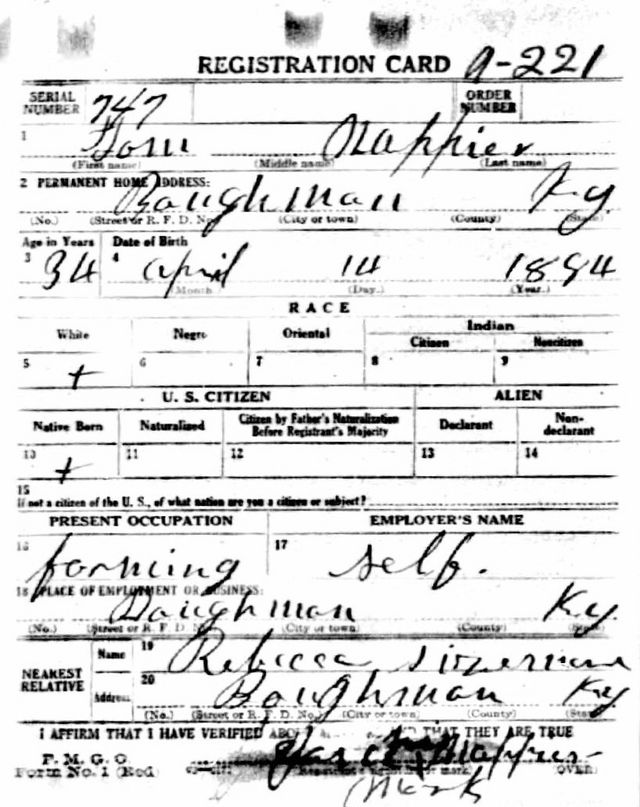 REGISTRATION CARD A-221
SERIAL NUMBER 747 ORDER NUMBER
1 Tom Nappier
(First name) (Middle name) (Last name)
2 PERMANENT HOME ADDRESS: Baughman Ky
(No.) (Street or R. F. D. No.) (City or town) (County) (State)
Age in Years Date of Birth
3 34 4 April 14 1884
(Month) (Day.) (Year.)
RACE
White Negro Oriental Indian
Citizen Noncitizen
5 + 6 7 8 9
U. S. CITIZEN ALIEN
Native Born Naturalized Citizen by Father's Naturalization Before Registrant's Majority Declarant Non-declarant
10 + 11 12 13 14
15
If not a citizen of the U. S., of what nation are you a citizen or subject?
PRESENT OCCUPATION EMPLOYER'S NAME
16 farming 17 self.
18 PLACE OF EMPLOYMENT OR BUSINESS:
Baughman Ky
(No.) (Street or R. F. D. No.) (City or town) (County) (State)
NEAREST RELATIVE Name 19 Rebecca
Address 20 Baughman Ky
(No.) (Street or R. F. D. No.) (City or town) (County) (State)
I AFFIRM THAT I HAVE VERIFIED THAT THEY ARE TRUE
P. M. G. O.
Form No. 1 (Red) Nappier (OVER)
mark